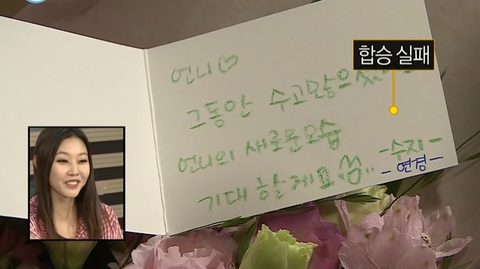 합승 실패
언니♡
그동안 수고많으
언니의 새로운모습
기대 할게요
-수지-
-연경-